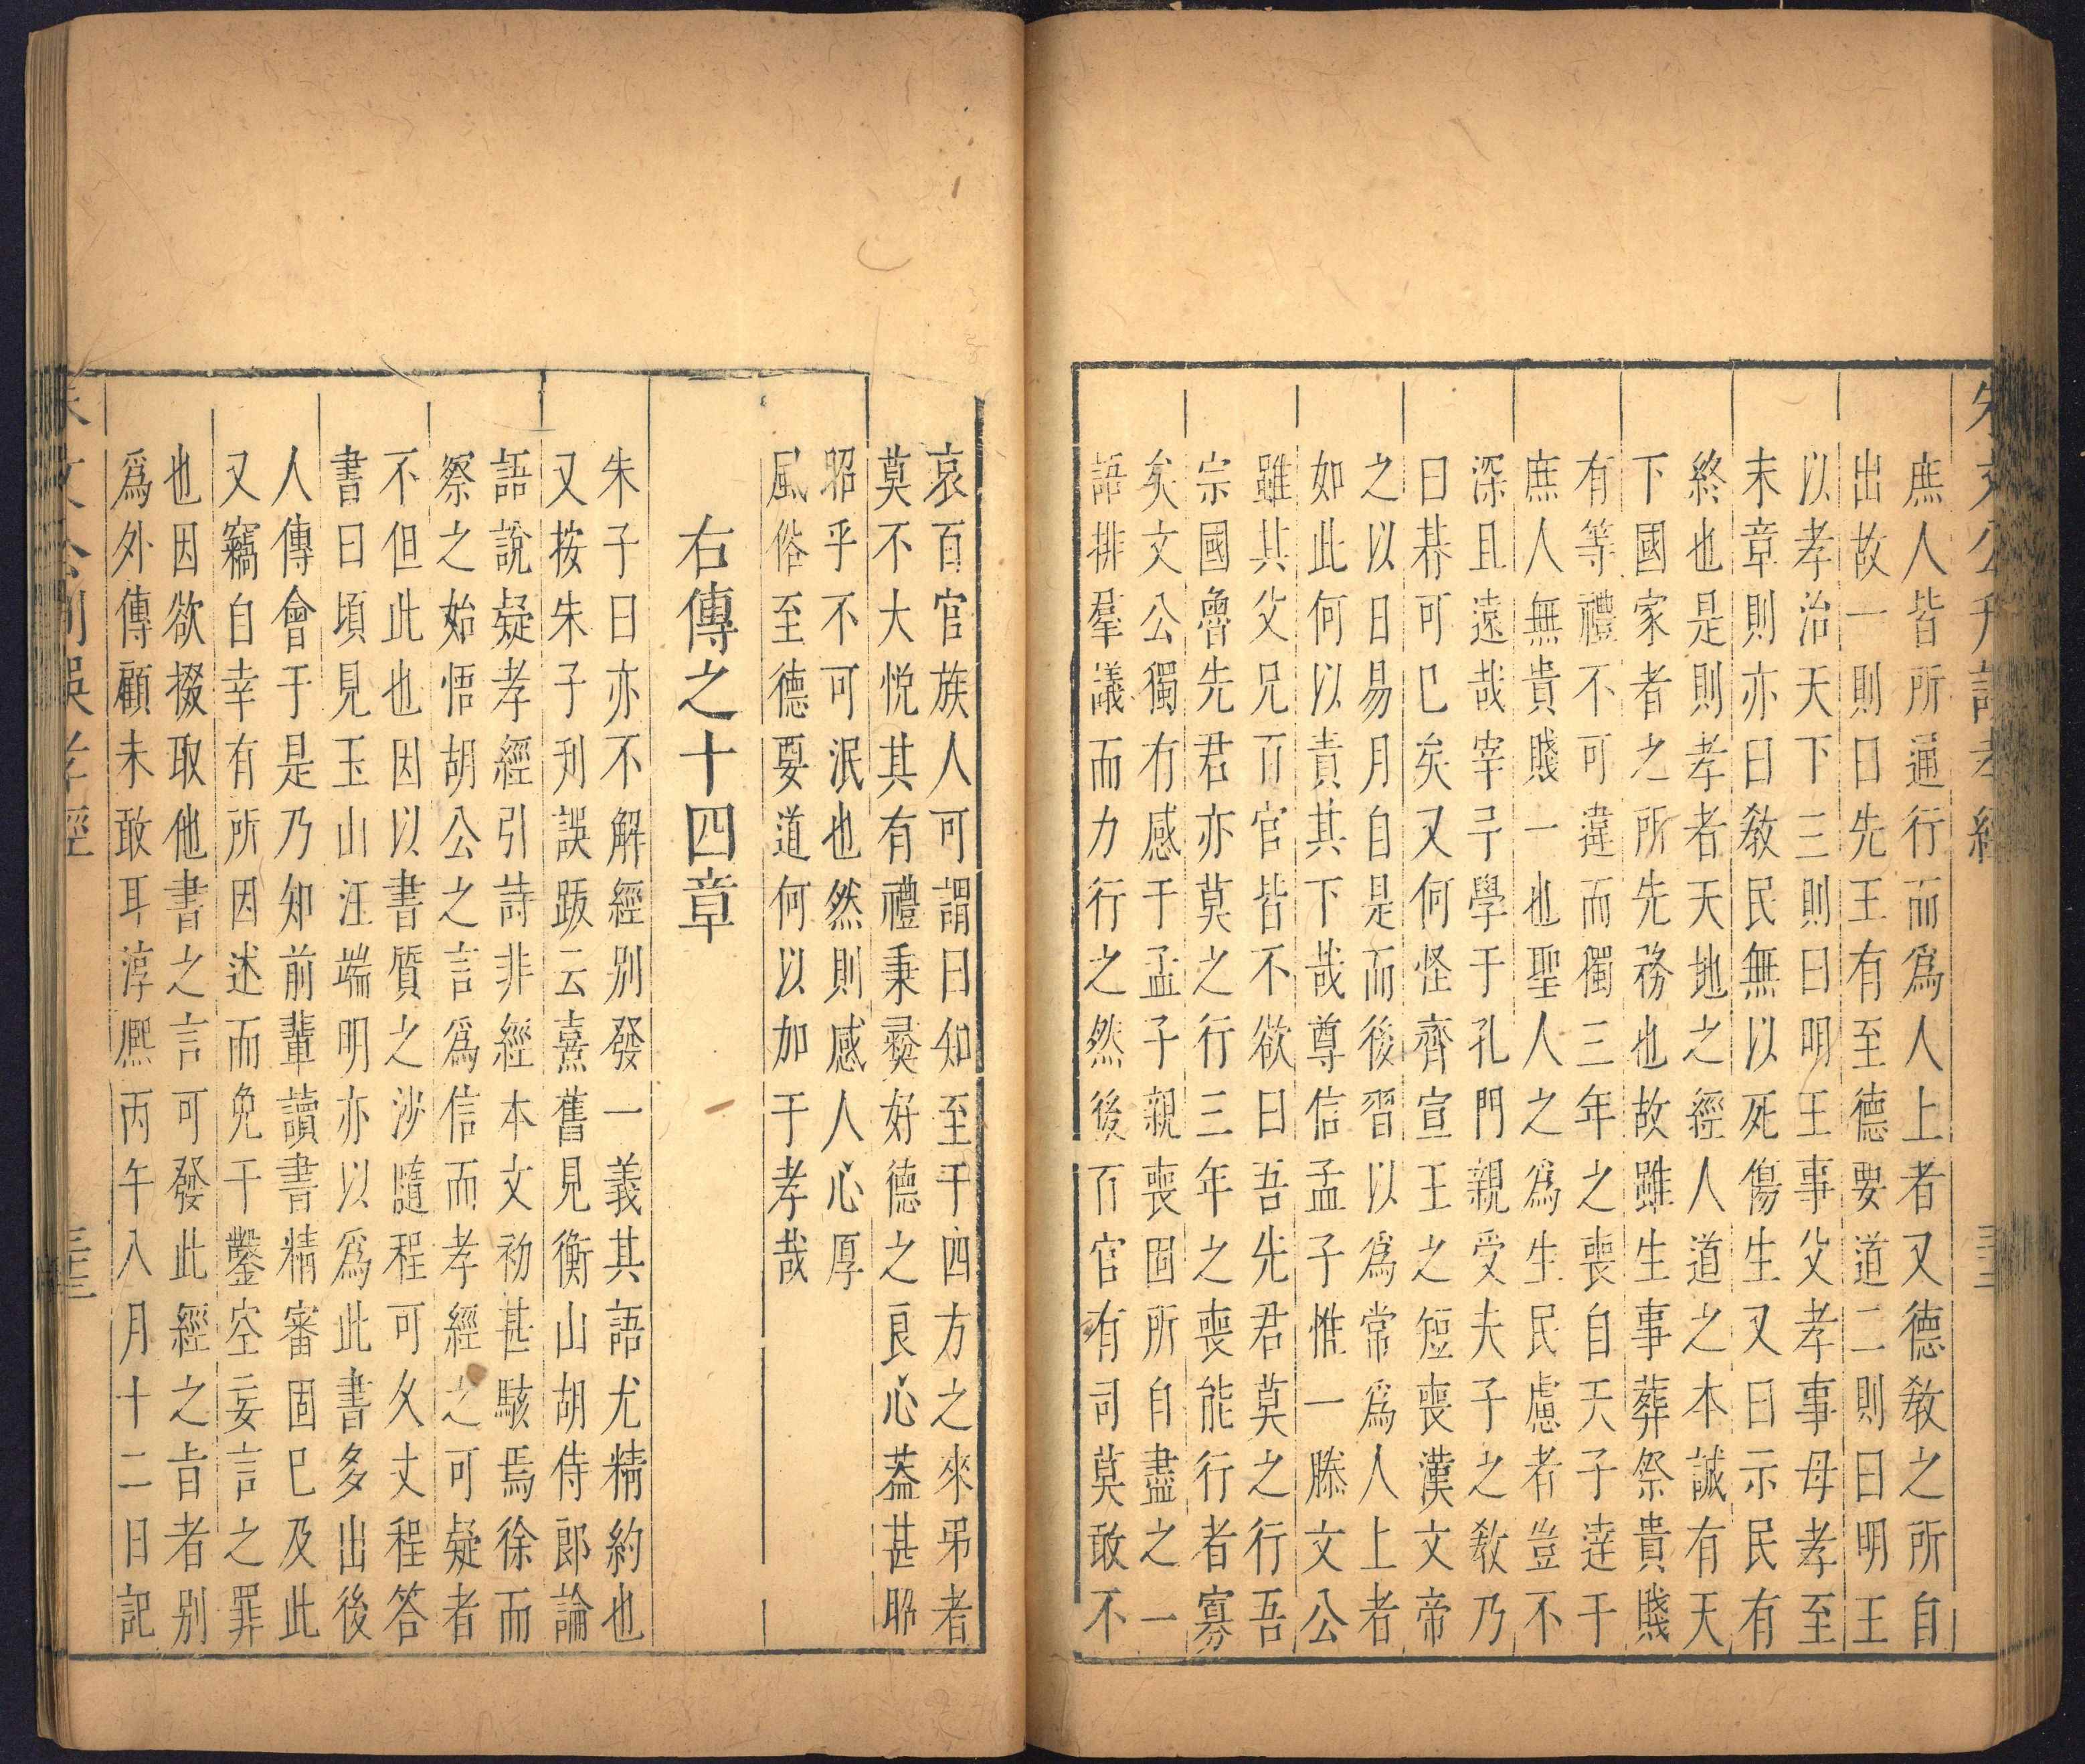 庶人皆所通行而爲人上者又德敎之所自
出故一則曰先王有至德要道二則曰明王
以孝治天下三則曰明王事父孝事母孝至
末章則亦曰敎民無以死傷生又曰示民有
終也是則孝者天地之經人道之本誠有天
下國家者之所先務也故雖生事葬祭貴賤
有等禮不可違而獨三年之喪自天子達于
庶人無貴賤一也聖人之爲生民慮者豈不
深且遠哉宰予學于孔門親受夫子之敎乃
曰朞可已矣又何怪齊宣王之短喪漢文帝
之以日易月自是而後習以爲常爲人上者
如此何以責其下哉尊信孟子惟一滕文公
雖其父兄百官皆不欲曰吾先君莫之行吾
宗國魯先君亦莫之行三年之喪能行者寡
矣文公獨有感于孟子親喪固所自盡之一
語排羣議而力行之然後百官有司莫敢不
哀百官族人可謂曰知至于四方之來弔者
莫不大悅其有禮秉彛好德之良心葢甚昭
昭乎不可泯也然則感人心厚
風俗至德要道何以加于孝哉
右傳之十四章
朱子曰亦不解經别發一義其語尤精約也
又按朱子刋誤䟦云熹舊見衡山胡侍郎論
語說疑孝經引詩非經本文初甚駭焉徐而
察之始悟胡公之言爲信而孝經之可疑者
不但此也因以書質之沙隨程可久丈程答
書曰頃見玉山汪端明亦以爲此書多出後
人傳會于是乃知前輩讀書精審固已及此
又竊自幸有所因述而免于鑿空妄言之罪
也因欲掇取他書之言可發此經之旨者别
爲外傳顧未敢耳淳熈丙午八月十二日記